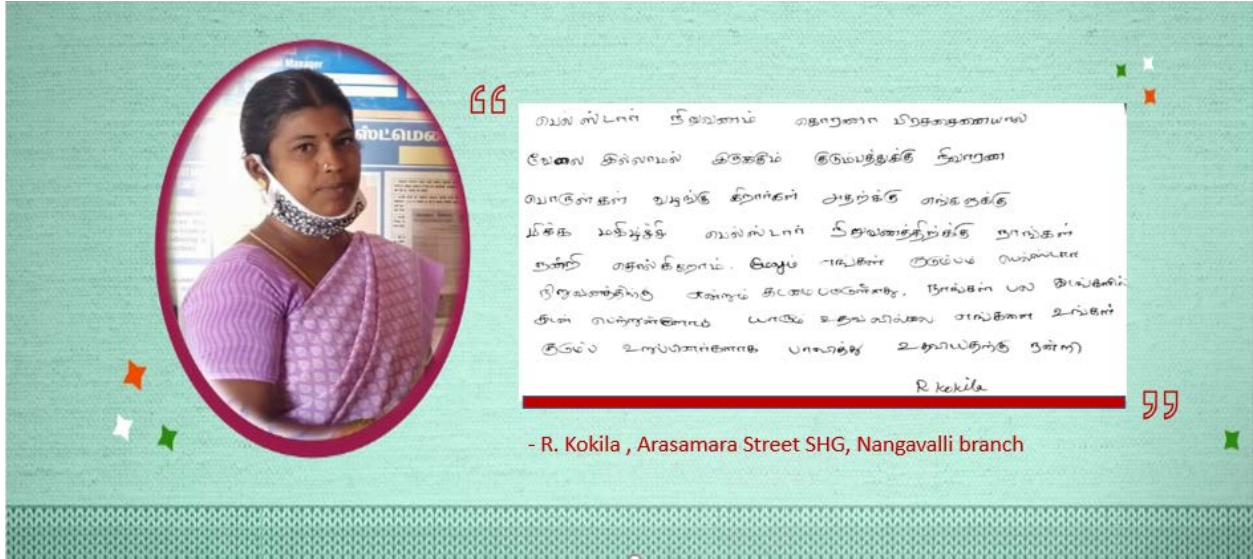 Manager
ஸ்ட்மென
“
வெல் ஸ்டார் நிறுவனம் கொரணா பிரச்சைனையால்
வேலை இல்லாமல் இருக்கும் குடும்பத்துக்கு நிவாரண
பொருள்கள் வழங்கு கிறார்கள் அதற்க்கு எங்களுக்கு
மிக்க மகிழ்ச்சி வெல்ஸ்டார் நிறுவனத்திற்க்கு நாங்கள்
நன்றி சொல்கிறோம். மேலும் எங்கள் குடும்பம் வெல்ஸ்டார்
நிறுவனத்திற்கு என்றும் கடமைபட்டுள்ளது. நாங்கள் பல இடங்களில்
கடன் பெற்றுள்ளோம் யாரும் உதவவில்லை எங்களை உங்கள்
குடும்ப உறுப்பினர்களாக பாவித்து உதவியதற்கு நன்றி
R kokila
”
- R. Kokila , Arasamara Street SHG, Nangavalli branch